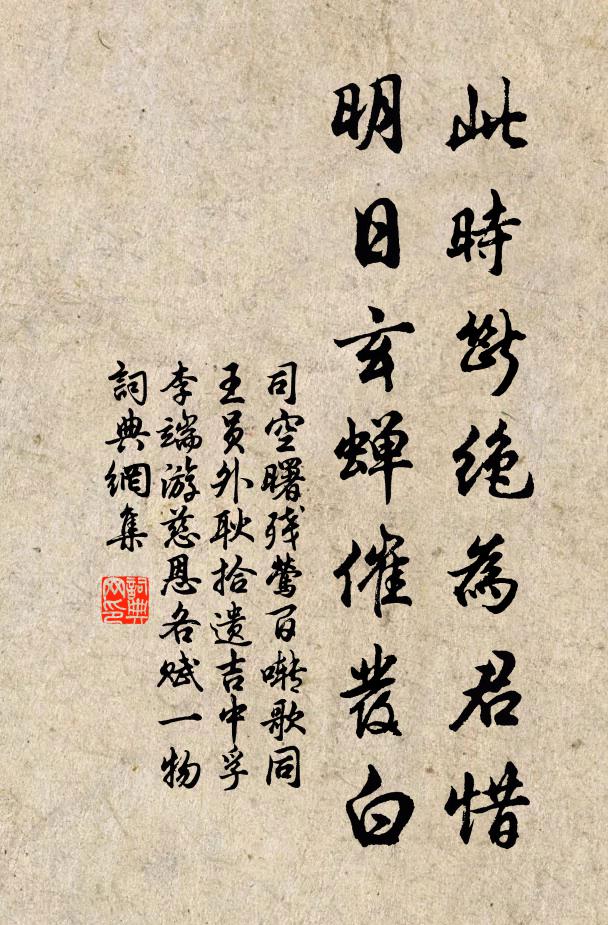 此時斷絕為君惜
明日玄蟬催發白
司空曙殘鶯百囀歌同
王員外耿拾遺吉中孚
李端游慈恩各賦一物
詞典網集
詞典
网印